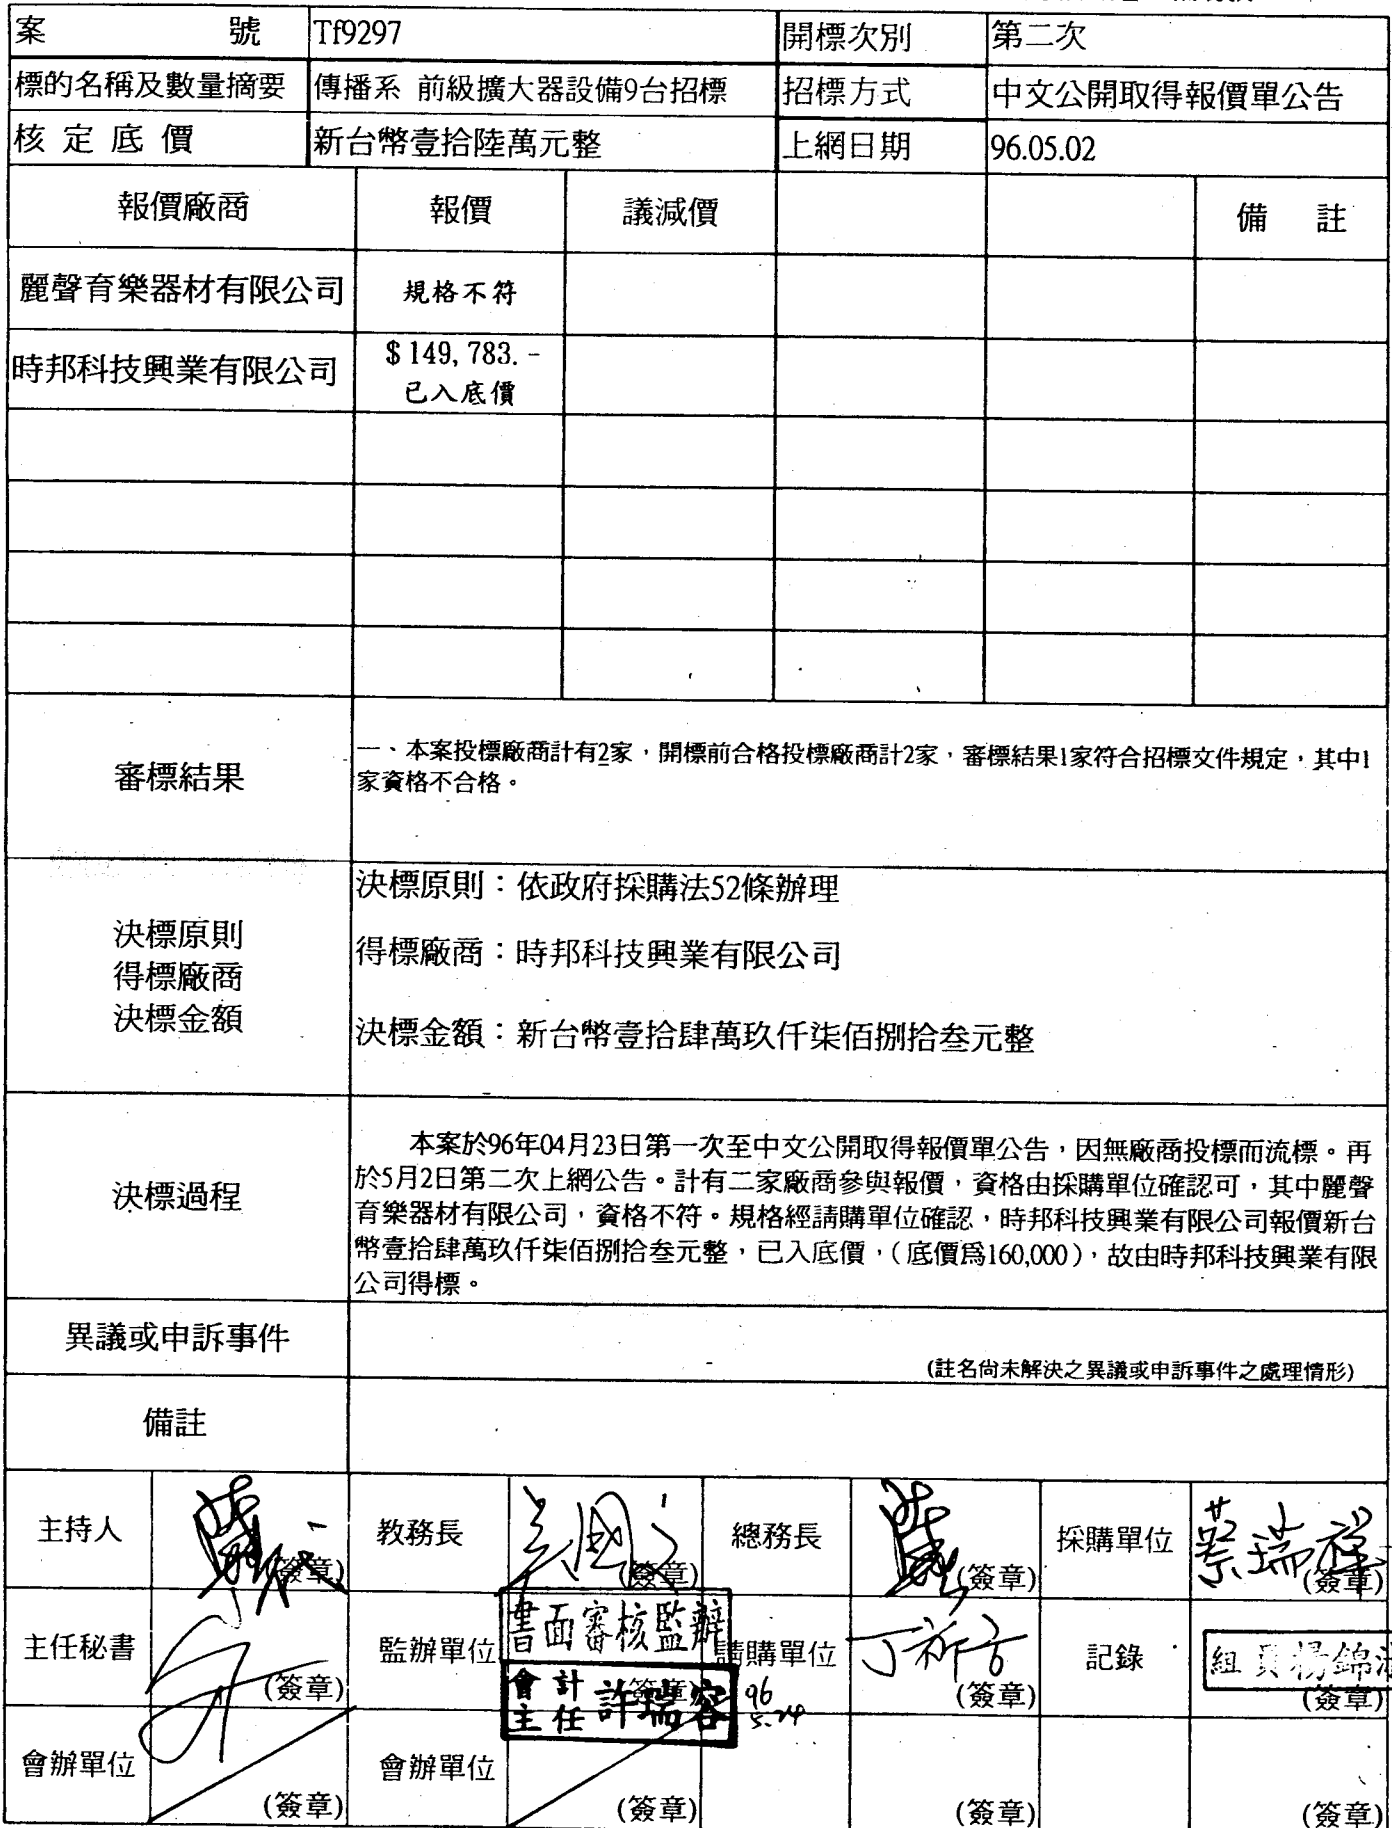 案 號 Tf9297 開標次別 第二次
標的名稱及數量摘要 傳播系 前級擴大器設備9台招標 招標方式 中文公開取得報價單公告
核定底價 新台幣壹拾陸萬元整 上網日期 96.05.02
報價廠商 報價 議減價 備 註
麗聲育樂器材有限公司 規格不符
時邦科技興業有限公司 $149,783.-
已入底價
審標結果
一、本案投標廠商計有2家，開標前合格投標廠商計2家，審標結果1家符合招標文件規定，其中1
家資格不合格。
決標原則
得標廠商
決標金額
決標原則：依政府採購法52條辦理
得標廠商：時邦科技興業有限公司
決標金額：新台幣壹拾肆萬玖仟柒佰捌拾叁元整
決標過程
本案於96年04月23日第一次至中文公開取得報價單公告，因無廠商投標而流標。再
於5月2日第二次上網公告。計有二家廠商參與報價，資格由採購單位確認可，其中麗聲
育樂器材有限公司，資格不符。規格經請購單位確認，時邦科技興業有限公司報價新台
幣壹拾肆萬玖仟柒佰捌拾叁元整，已入底價，（底價為160,000），故由時邦科技興業有限
公司得標。
異議或申訴事件
(註名尚未解決之異議或申訴事件之處理情形)
備註
主持人 (簽章) 教務長 (簽章) 總務長 (簽章) 採購單位 蔡瑞祥 (簽章)
主任秘書 (簽章) 監辦單位 書面審核監辦 (簽章) 請購單位 (簽章) 記錄 組員楊錦 (簽章)
會計主任 許瑞容 96 5.24
會辦單位 (簽章) 會辦單位 (簽章) (簽章) (簽章)